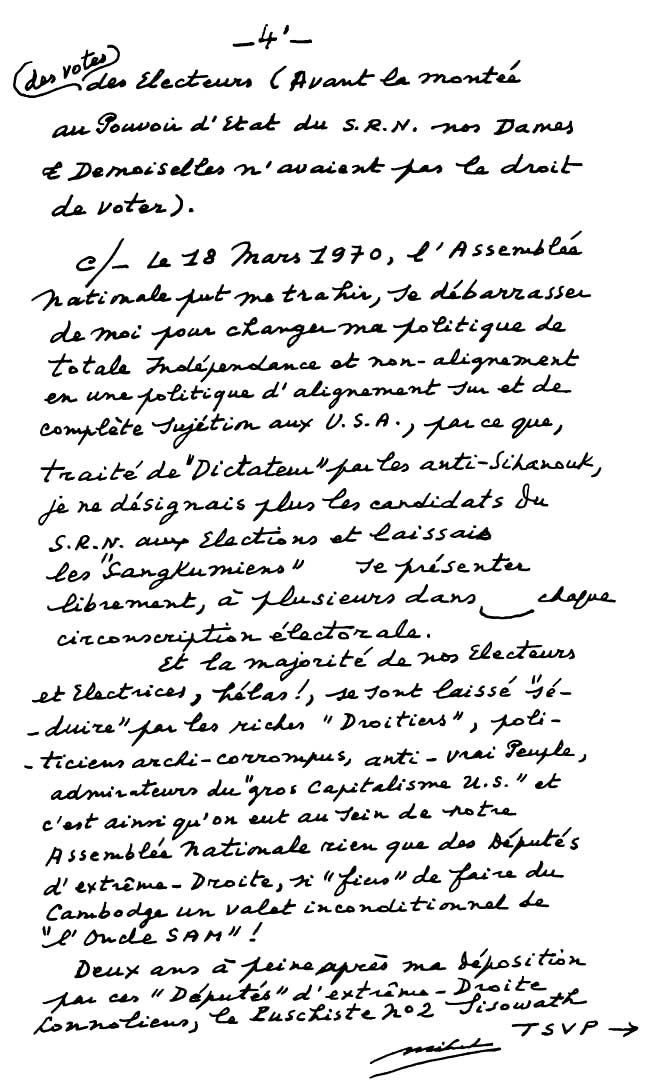 — 4' —
(des votes) des Electeurs (Avant la montée
au Pouvoir d'Etat du S.R.N. nos Dames
& Demoiselles n'avaient pas le droit
de voter).
c/- Le 18 Mars 1970, l'Assemblée
Nationale put me trahir, se débarrasser
de moi pour changer ma politique de
totale Indépendance et non-alignement
en une politique d'alignement sur et de
complète sujétion aux U.S.A., parce que,
traité de "Dictateur" par les anti-Sihanouk,
je ne désignais plus les candidats du
S.R.N. aux Elections et laissais
les "Sangkumiens" se présenter
librement, à plusieurs dans chaque
circonscription électorale.
Et la majorité de nos Electeurs
et Electrices, hélas!, se sont laissé "sé-
-duire" par les riches "Droitiers", poli-
-ticiens archi-corrompus, anti-vrai Peuple,
admirateurs du "gros Capitalisme U.S." et
c'est ainsi qu'on eut au sein de notre
Assemblée Nationale rien que des Députés
d'extrême-Droite, si "fiers" de faire du
Cambodge un valet inconditionnel de
"l'Oncle SAM"!
Deux ans à peine après ma déposition
par ces "Députés" d'extrême-Droite
Lonnoliens, le Puschiste no2 Sisowath
TSVP →